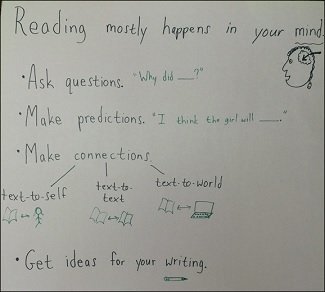 Reading mostly happens in your mind.
• Ask questions. "Why did ___?"
• Make predictions. "I think the girl will ___."
• Make connections
text-to-self text-to-text text-to-world
• Get ideas for your writing.